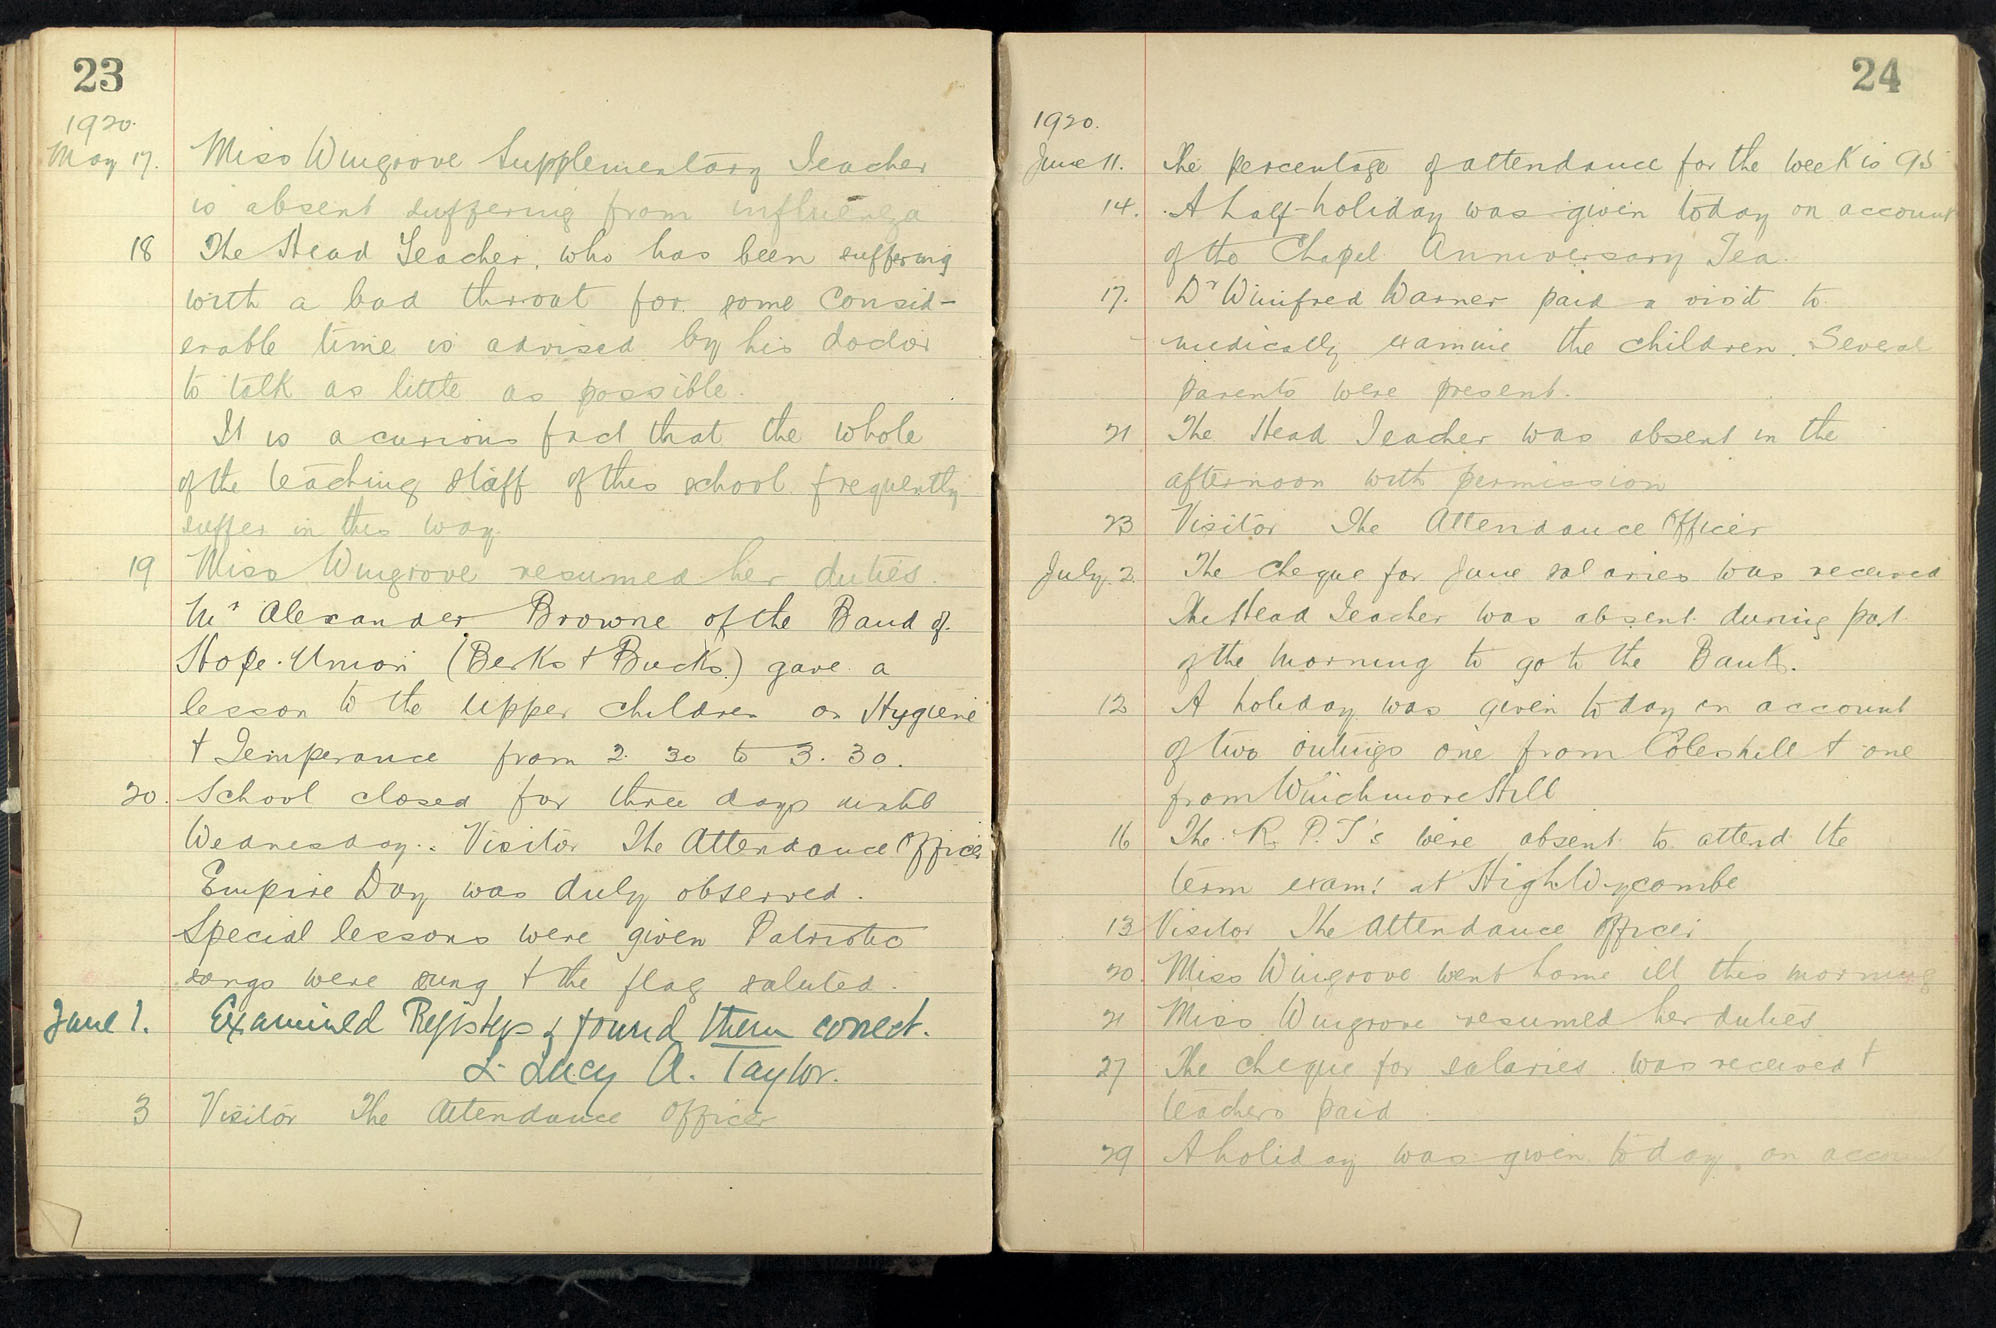 23
1920.
May 17. Miss Wingrove Supplementary Teacher
is absent suffering from influenza
18 The Head Teacher, who has been suffering
with a bad throat for some consid-
erable time is advised by his doctor
to talk as little as possible.
It is a curious fact that the whole
of the teaching staff of this school frequently
suffer in this way.
19 Miss Wingrove resumed her duties.
Mr Alexander Browne of the Band of
Hope Union (Berks & Bucks.) gave a
lesson to the upper children on Hygiene
& Temperance from 2. 30 to 3. 30.
20. School closed for three days until
Wednesday. Visitor The Attendance Officer
Empire Day was duly observed.
Special lessons were given Patriotic
songs were sung & the flag saluted.
June 1. Examined Registers & found them correct.
L. Lucy A. Taylor.
3 Visitor The Attendance Officer
24
1920.
June 11. The percentage of attendance for the week is 95
14. A half-holiday was given today on account
of the Chapel Anniversary Tea.
17. Dr Winifred Warner paid a visit to
medically examine the children. Several
parents were present.
21 The Head Teacher was absent in the
afternoon with permission
23 Visitor The Attendance Officer
July 2. The cheque for June salaries was received
The Head Teacher was absent during part
of the morning to go to the Bank.
12 A holiday was given today on account
of two outings one from Coleshill & one
from Winchmore Hill
16 The R. P. T's were absent to attend the
term exam: at High Wycombe
13 Visitor The Attendance Officer
20. Miss Wingrove went home ill this morning
21 Miss Wingrove resumed her duties.
27 The cheque for salaries was received &
teachers paid.
29 A holiday was given today on account